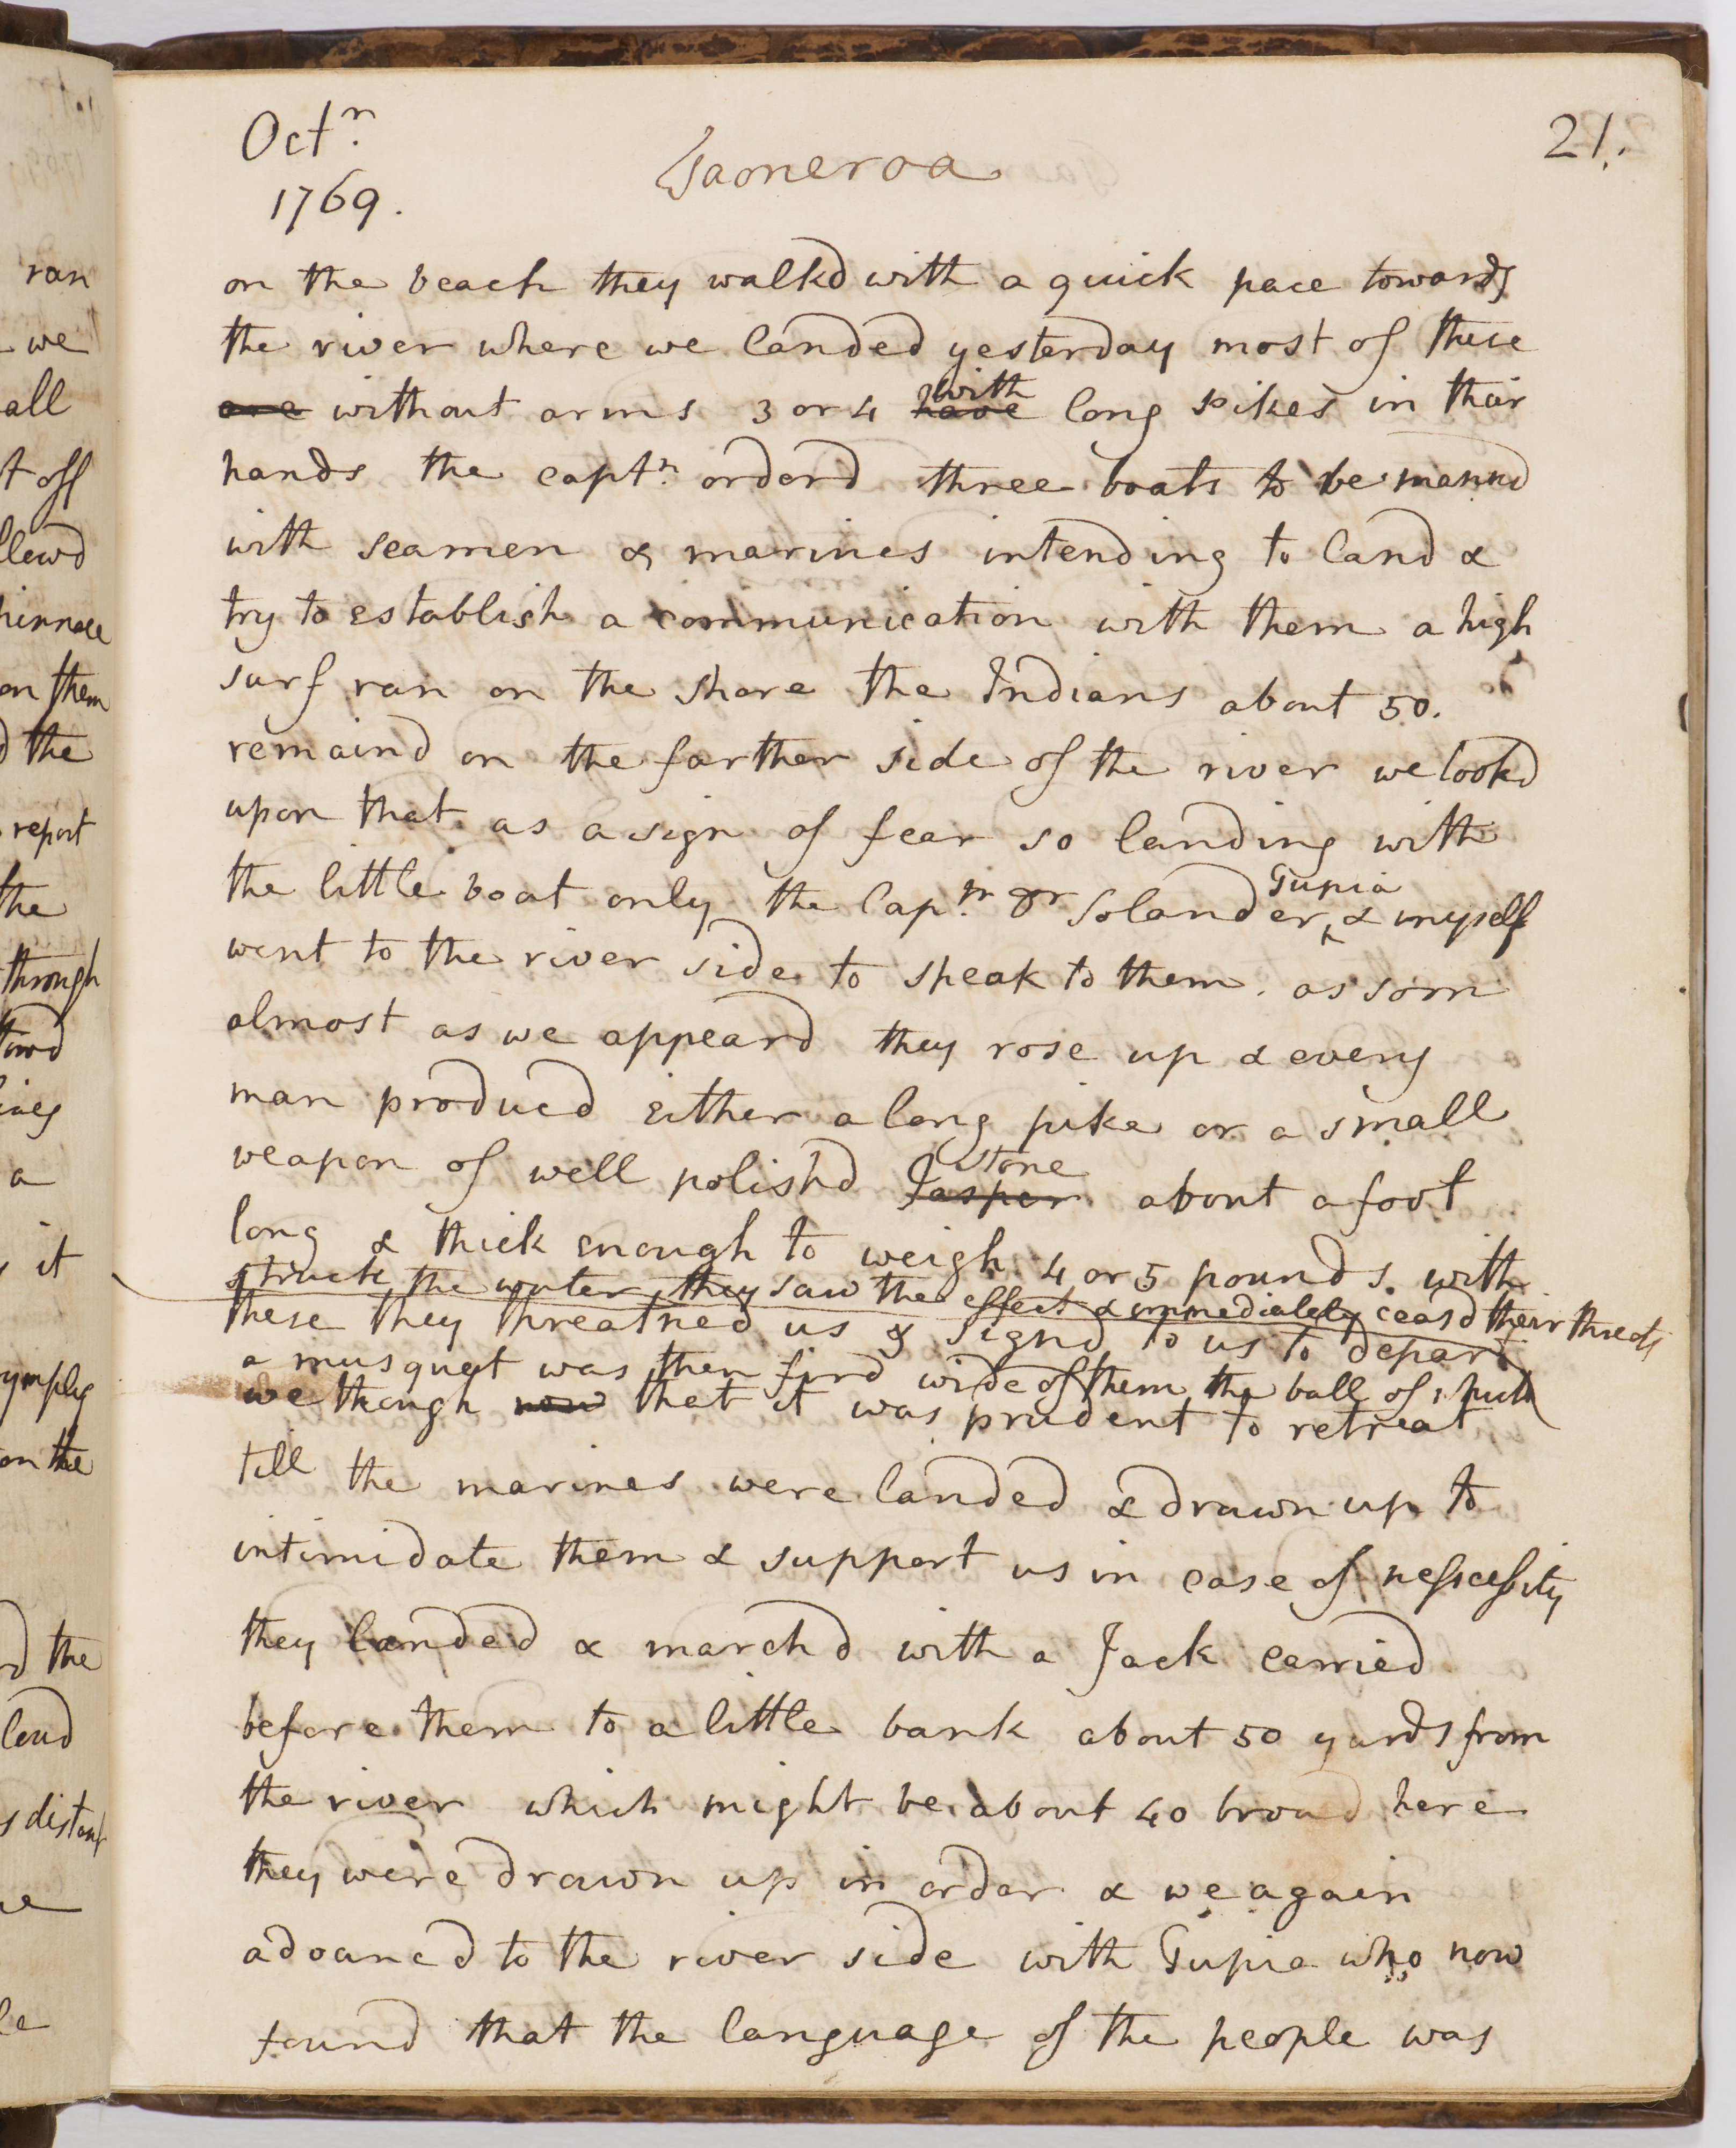 Octr.
1769.
Taoneroa
21.
on the beach they walkd with a quick pace towards
the river where we landed yesterday most of these
are without arms 3 or 4 have with long pikes in their
hands the captn. orderd three boats to be mannd
with seamen & marines intending to land &
try to establish a communication with them a high
surf ran on the shore the Indians about 50.
remaind on the farther side of the river we lookd
upon that as a sign of fear so landing with
the little boat only the Captn. Dr Solander, Tupia & myself
went to the river side to speak to them. as soon
almost as we appeard they rose up & every
man producd either a long pike or a small
weapon of well polishd Jasper stone about a foot
long & thick enough to weigh 4 or 5 pounds. with
these they threatned us & signd to us to depart
a musquet was then fird wide of them the ball of which
struck the water they saw the effect & immediately ceasd their threats
we though now that it was prudent to retreat
till the marines were landed & drawn up to
intimidate them & support us in case of nescessity
they landed & marchd with a Jack carried
before them to a little bank about 50 yards from
the river which might be about 40 broad here
they were drawn up in order & we again
advancd to the river side with Tupia who now
found that the language of the people was
ran
we
all
t off
llowd
pinnace
on them
d the
report
the
through
a
it
on the
d the
loud
s distant